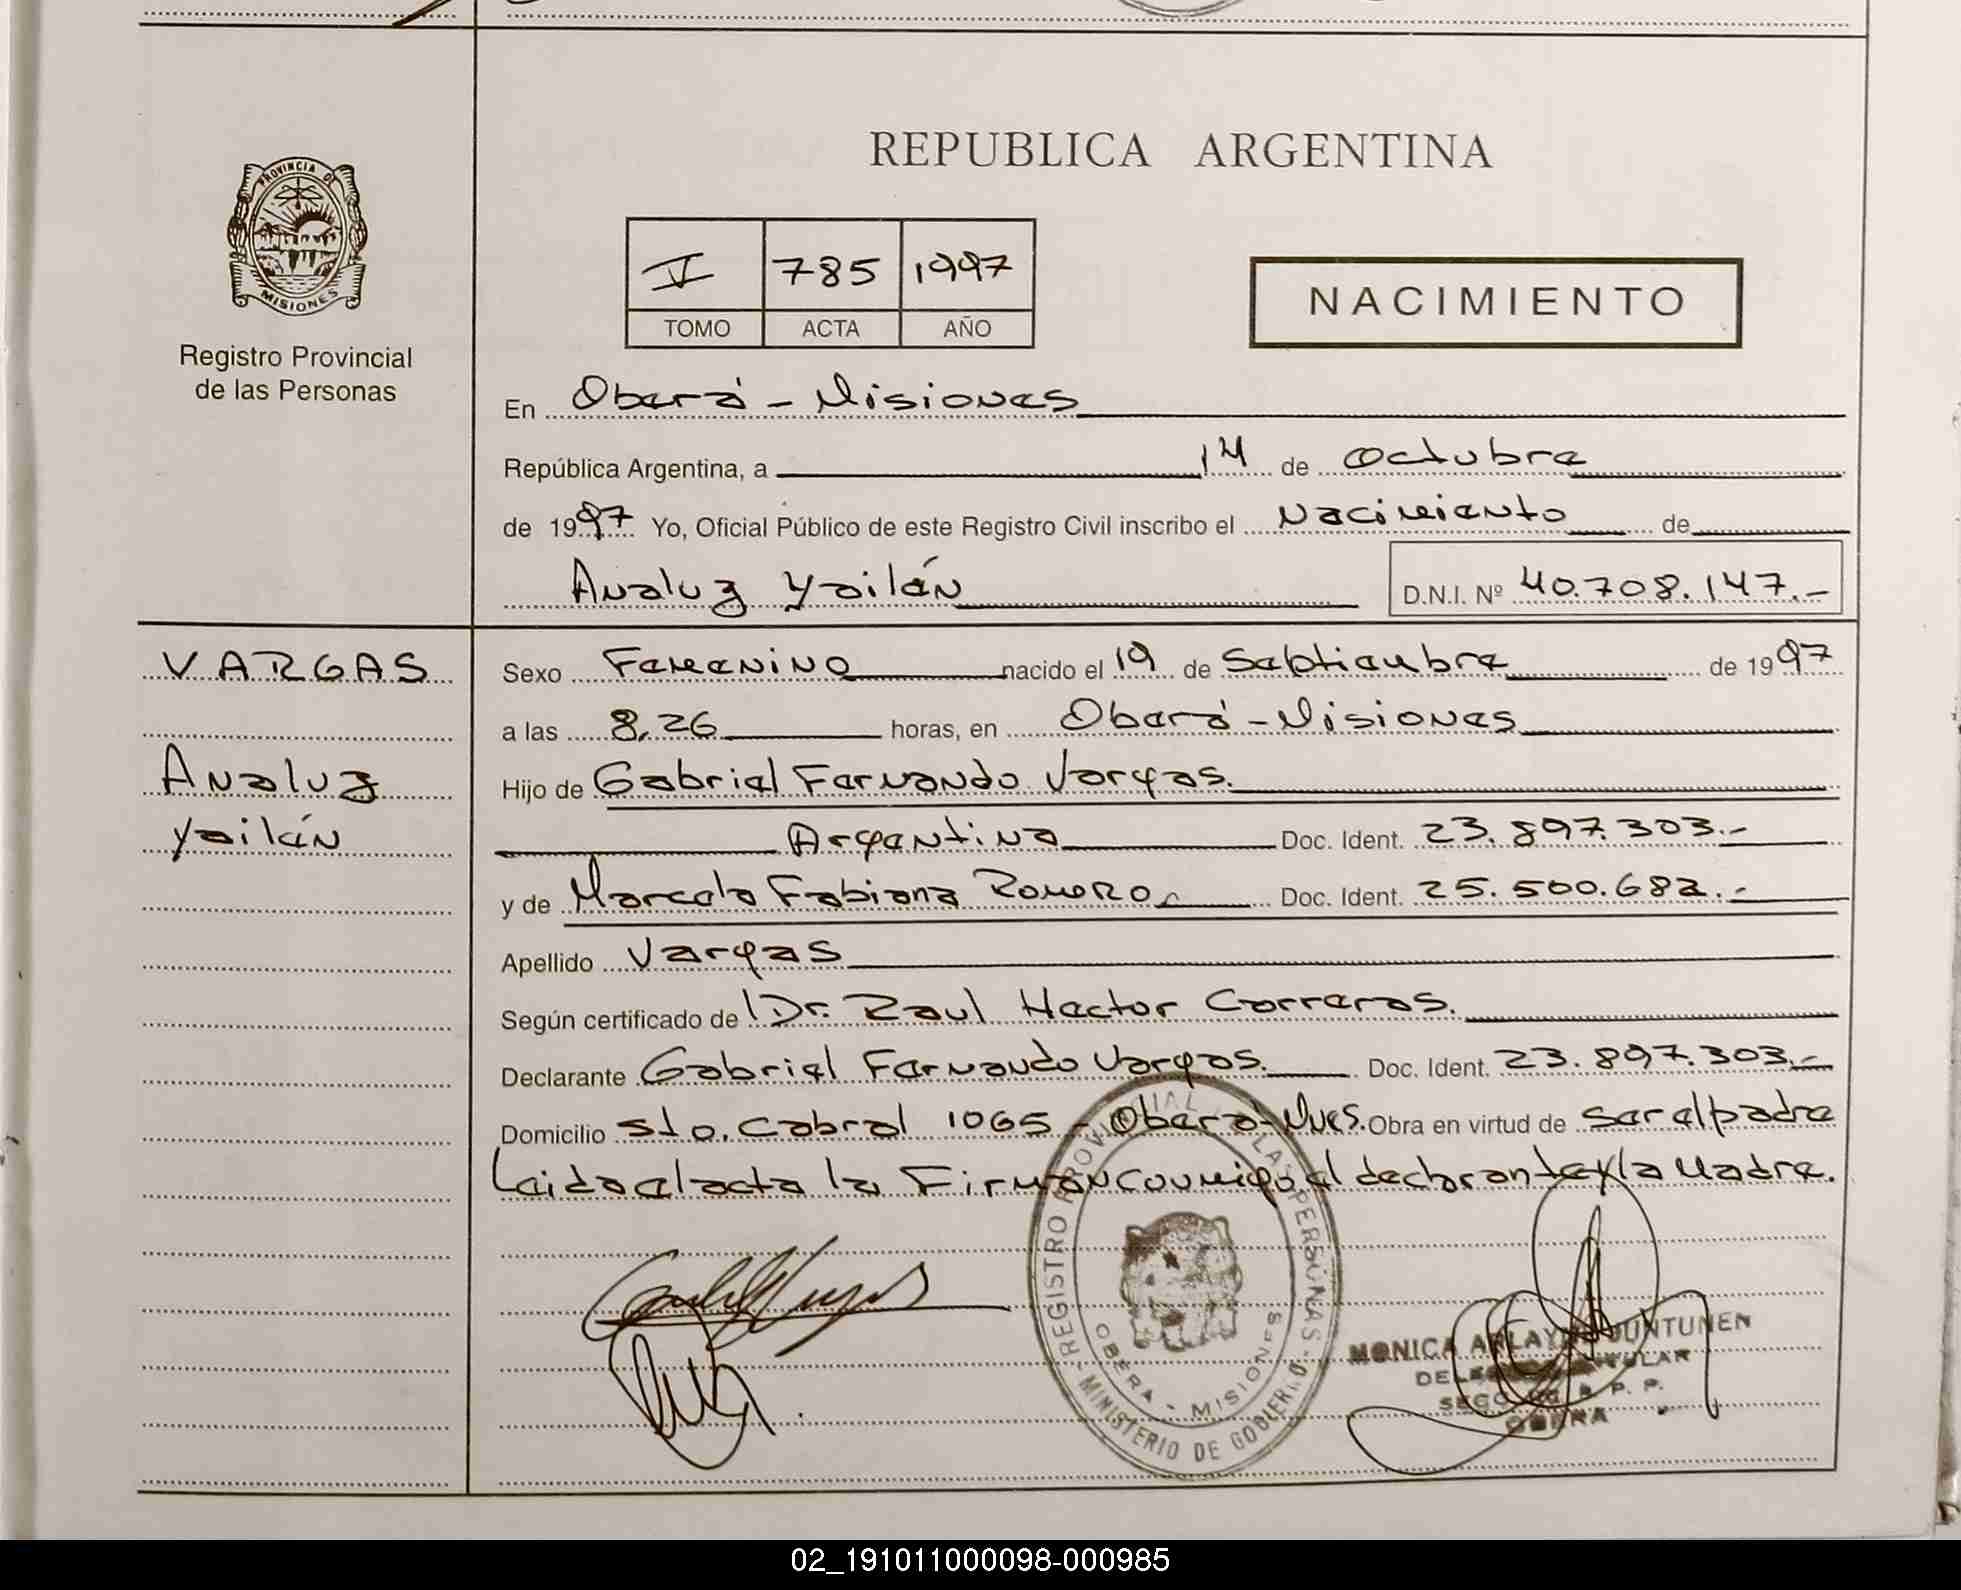 REPUBLICA ARGENTINA
PROVINCIA DE
MISIONES
Registro Provincial
de las Personas
V 785 1997
TOMO ACTA AÑO
NACIMIENTO
En Oberá - Misiones
República Argentina, a 14 de octubre
de 1997 Yo, Oficial Público de este Registro Civil inscribo el Nacimiento de
Analuz Yailén D.N.I. Nº 40.708.147.-
VARGAS
Analuz
Yailén
Sexo Femenino nacido el 19 de Septiembre de 1997
a las 8,26 horas, en Oberá - Misiones
Hijo de Gabriel Fernando Vargas.
Argentino Doc. Ident. 23.897.303.-
y de Marcela Fabiana Romero Doc. Ident. 25.500.682.-
Apellido Vargas
Según certificado de Dr. Raul Hector Correras.
Declarante Gabriel Fernando Vargas. Doc. Ident. 23.897.303.-
Domicilio Sto. Cabral 1065 - Oberá - Mnes. Obra en virtud de ser el padre
Leida el acta la Firman conmigo el declarante y la Madre.
REGISTRO PROVINCIAL LAS PERSONAS - MINISTERIO DE GOBIERNO
OBERA - MISIONES
MONICA JUNTUNEN
TITULAR
R. P. P.
OBERA
02_191011000098-000985